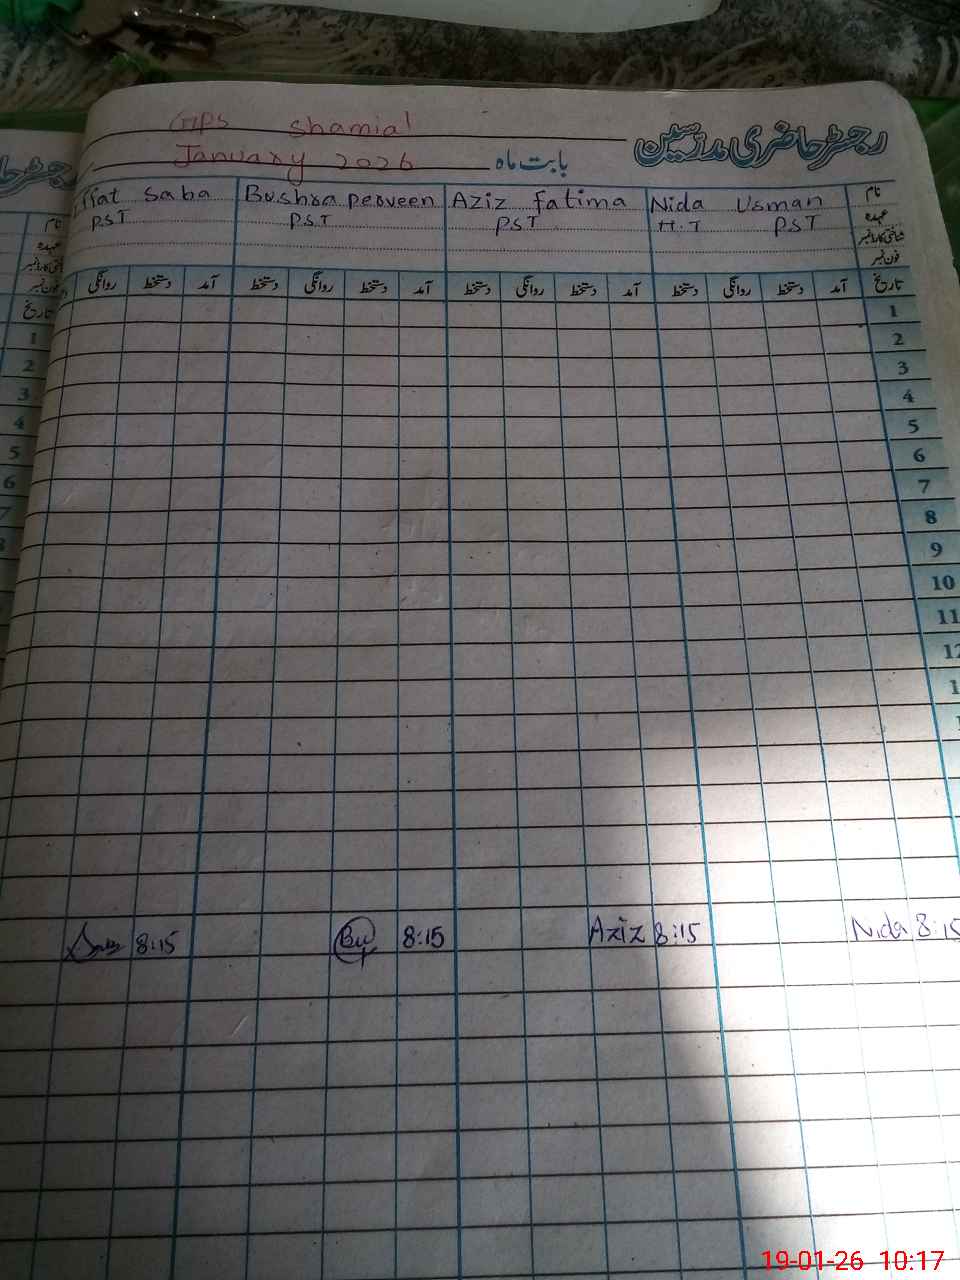 GPS Shamial
رجسٹر حاضری مدرسین
January 2026 بابت ماہ
Saba Bushra Perveen Aziz fatima Nida Usman نام
PST PST PST H.T PST عہدہ
شناختی کارڈ نمبر
فون نمبر
روانگی دستخط آمد دستخط روانگی دستخط آمد دستخط روانگی دستخط آمد دستخط روانگی دستخط آمد تاریخ
1
2
3
4
5
6
7
8
9
10
11
12
8:15 Bu 8:15 Aziz 8:15 Nida 8:15
نام
عہدہ
فون نمبر
تاریخ
1
2
3
4
5
6
7
8
19-01-26 10:17